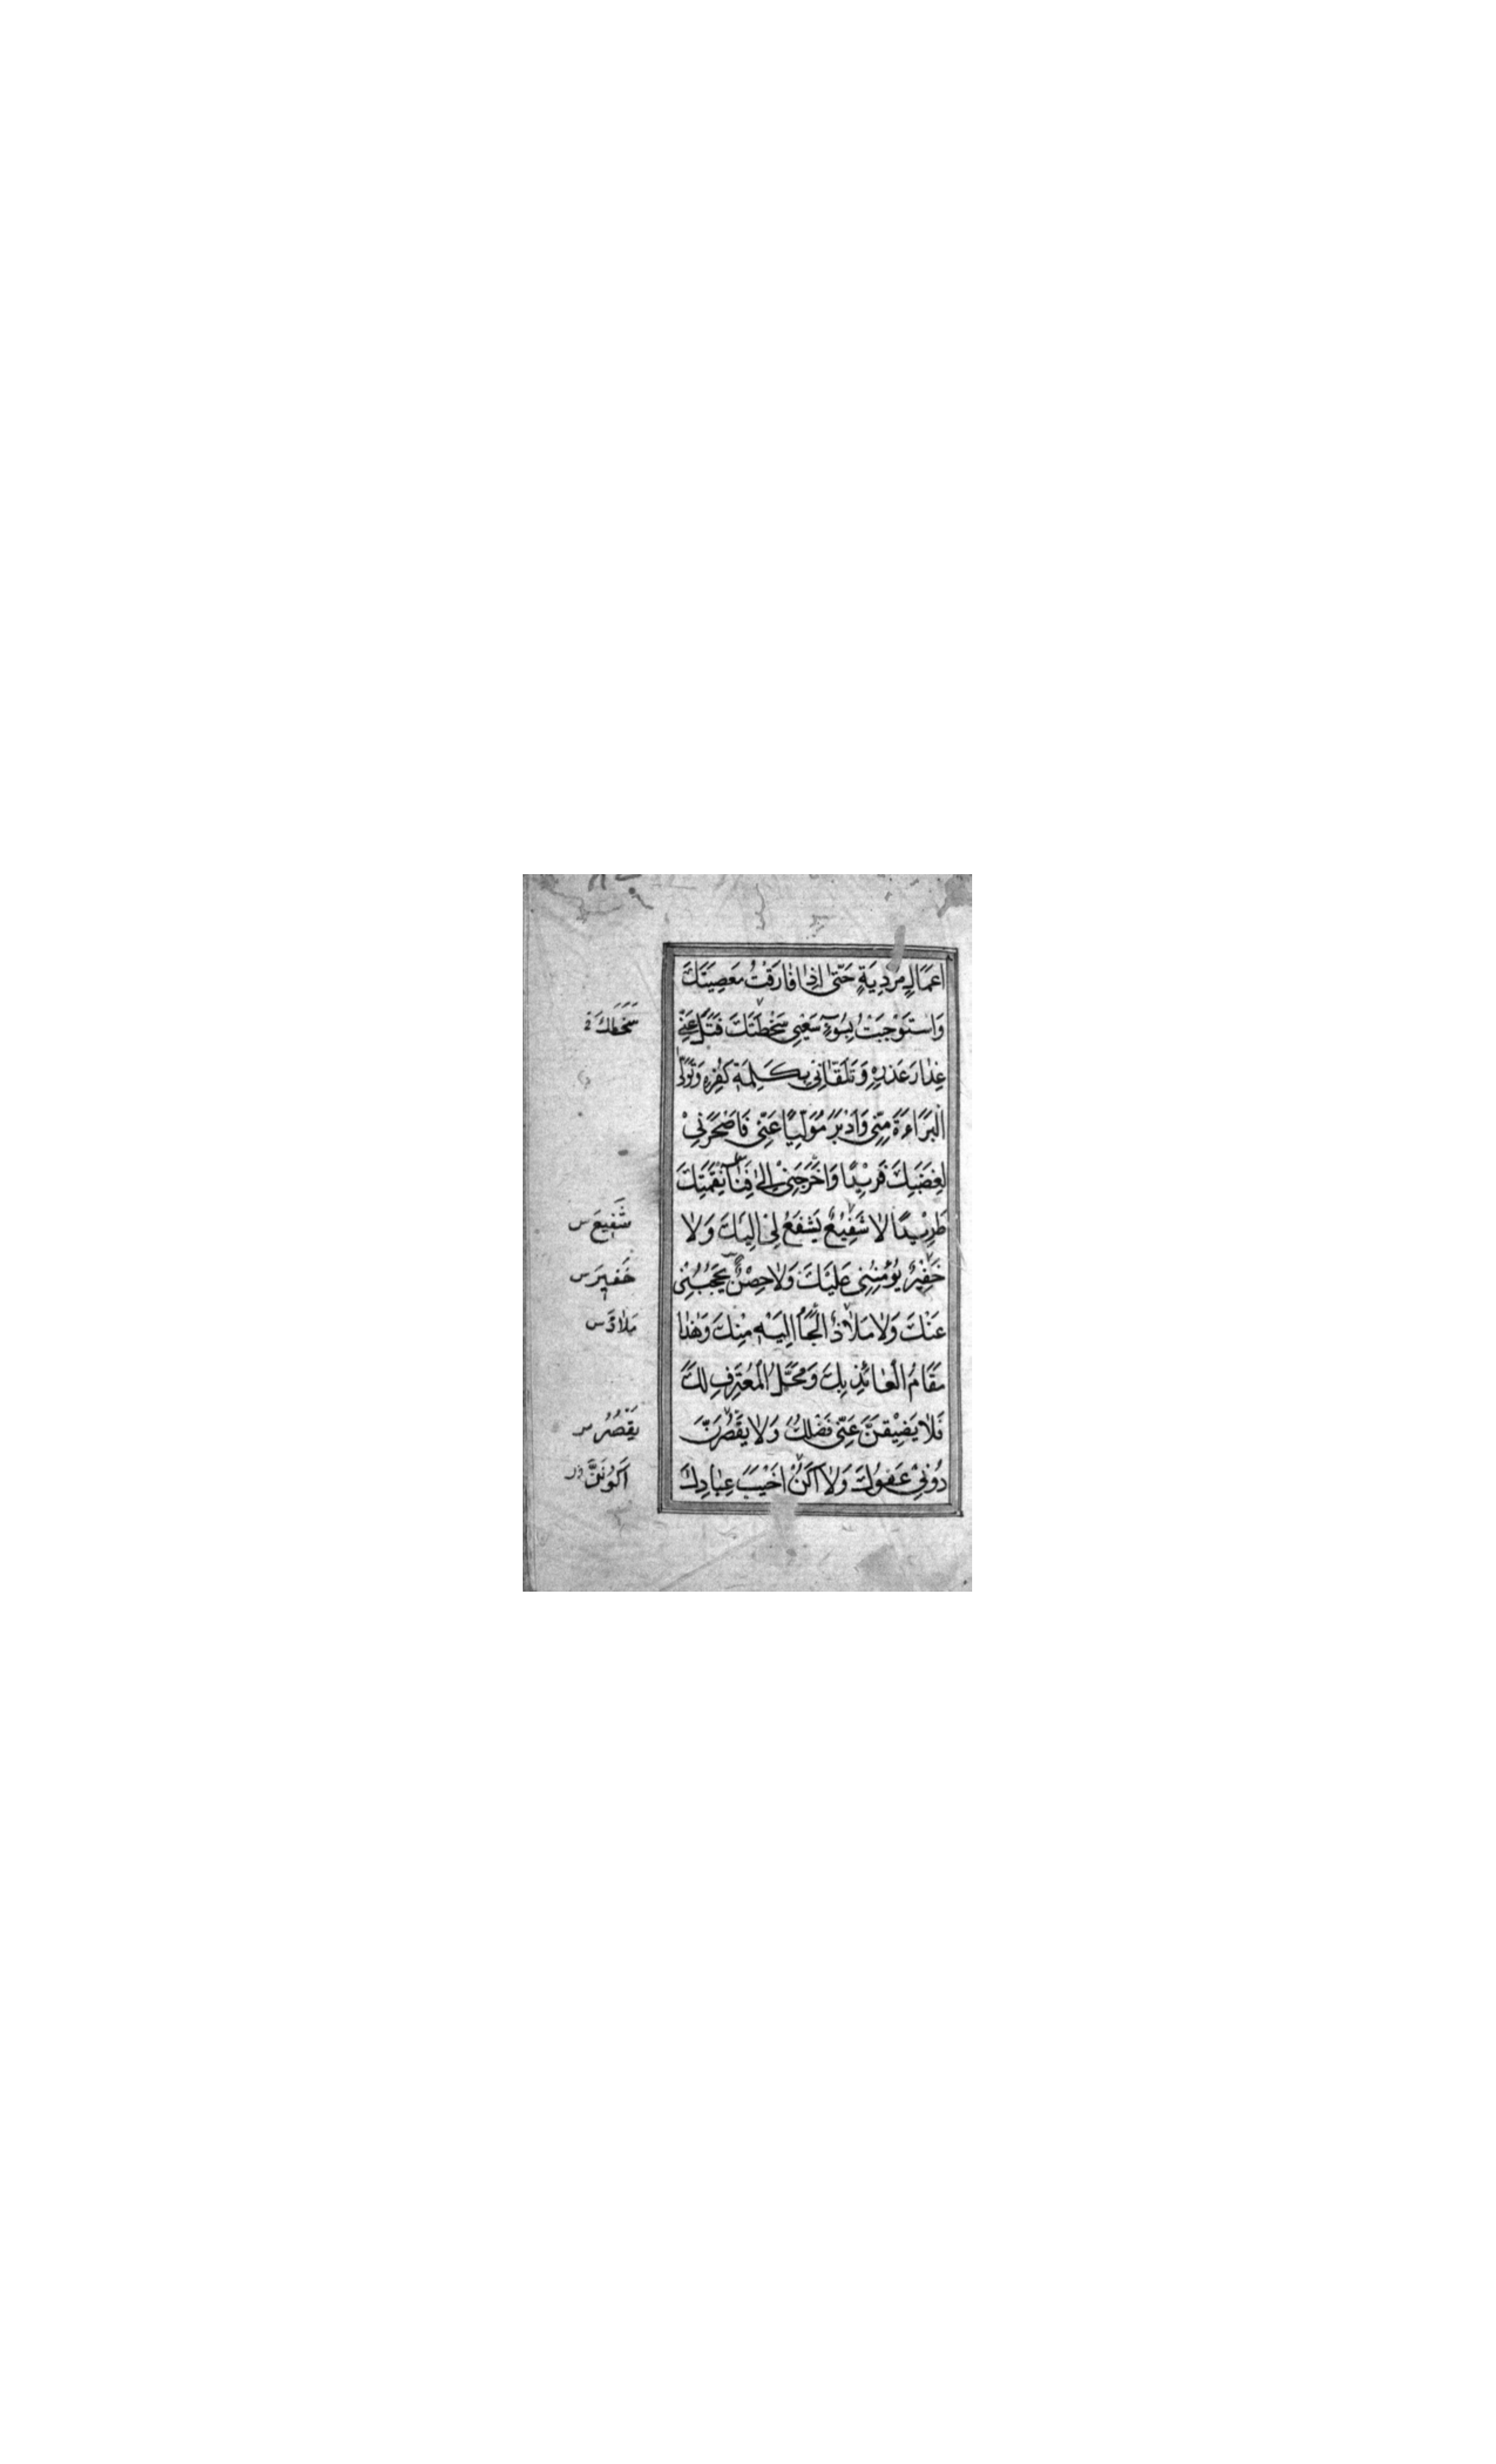 اَعْمَالٍ مُرْدِيَةٍ حَتّىٰ اِذٰا فٰارَقْتُ مَعْصِيَتَكَ
وَاسْتَوْجَبْتُ بِسُوۤءِ سَعْيِي سَخْطَتَكَ فَتَلَ عَنِّي
عِذٰارَ غَدْرِهِ وَتَلَقّانِي بِكَلِمَةِ كُفْرِهِ وَتَوَلَّى
الْبَرَاءَةَ مِنِّي وَاَدْبَرَ مُوَلِّيًا عَنِّي فَاَصْحَرَنِيْ
لِغَضَبِكَ فَرِيْدًا وَاَخْرَجَنِيْ اِلىٰ فِنٰاۤءِ نَقِمَتِكَ
طَرِيْدًا لاٰ شَفِيْعٌ يَشْفَعُ لِيْ اِلَيْكَ وَلاٰ
خَفِيْرٌ يُؤْمِنُنِي عَلَيْكَ وَلاٰ حِصْنٌ يَحْجُبُنِي
عَنْكَ وَلاٰ مَلاٰذٌ اَلْجَأُ اِلَيْهِ مِنْكَ وَهٰذٰا
مَقَامُ الْعٰائِذِ بِكَ وَمَحَلُّ الْمُعْتَرِفِ لَكَ
فَلاٰ يَضِيْقَنَّ عَنِّي فَضْلُكَ وَلاٰ يَقْصُرَنَّ
دُوْنِيْ عَفْوُكَ وَلاٰ اَكُنْ اَخْيَبَ عِبٰادِكَ
سَخَطَكَ
شَفِيعَ س
خَفِيرَ س
مَلاٰذَ س
يَقْصُرُ س
اَكُوْنَنَّ